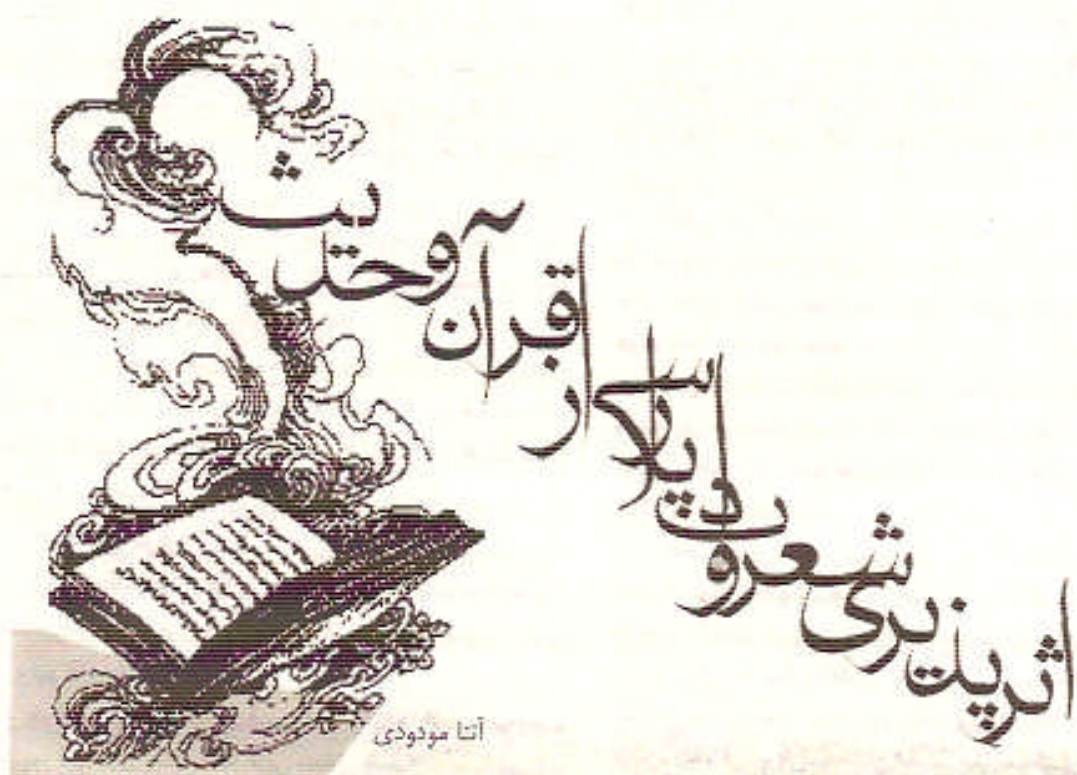 اثرپذیری شعر و ادب پارسی از قرآن و حدیث
آتنا مودودی